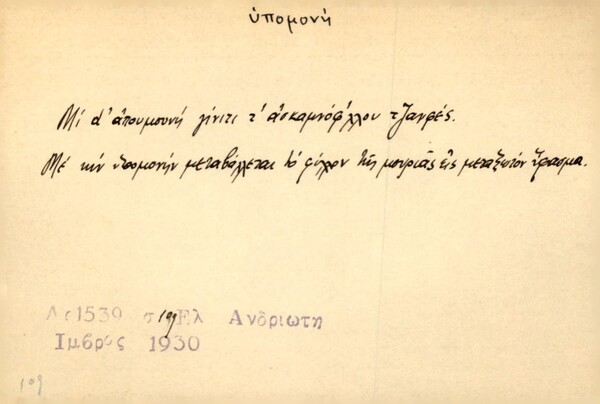 ὑπομονή
Μὶ d' ἀπουμουνή γίνιτι τ' ἀσκαμνόφ'λλου τζανφές.
Μὲ τὴν ὑπομονὴν μεταβάλλεται τὸ φύλλον τῆς μουριᾶς εἰς μεταξωτὸν ὕφασμα.
Λε1539 σ 109 Ελ Ανδριωτη
Ιμβρος 1930
109